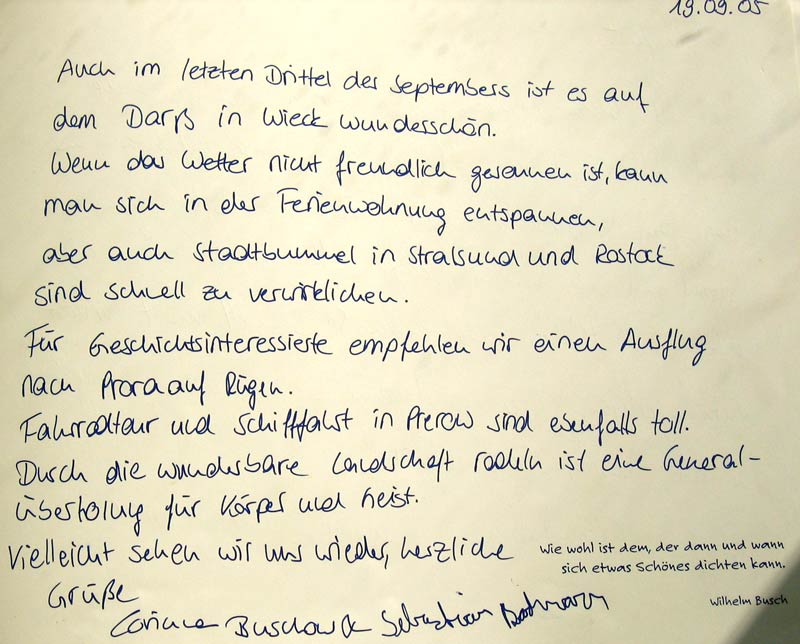 19.09.05
Auch im letzten Drittel des Septembers ist es auf
dem Darß in Wieck wunderschön.
Wenn das Wetter nicht freundlich gesonnen ist, kann
man sich in der Ferienwohnung entspannen,
aber auch Stadtbummel in Stralsund und Rostock
sind schnell zu verwirklichen.
Für Geschichtsinteressierte empfehlen wir einen Ausflug
nach Prora auf Rügen.
Fahrradtour und Schifffahrt in Prerow sind ebenfalls toll.
Durch die wunderbare Landschaft radeln ist eine General-
überholung für Körper und Geist.
Vielleicht sehen wir uns wieder, herzliche
Grüße
Corinna Buschow & Sebastian
Wie wohl ist dem, der dann und wann
sich etwas Schönes dichten kann.
Wilhelm Busch